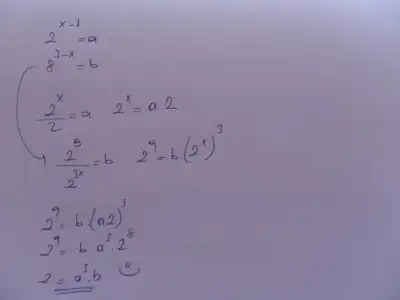 2^{x-1} = a
8^{3-x} = b
2^x/2 = a 2^x = a 2
2^9/2^{3x} = b 2^9 = b(2^x)^3
2^9 = b.(a2)^3
2^9 = b a^3.2^8
2 = a^3.b